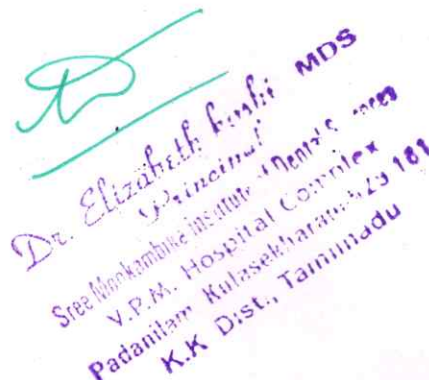 Dr. Elizabeth Koshi MDS
Principal
Sree Mookambika Institute of Dental Sciences
V.P.M. Hospital Complex
Padanilam Kulasekharam 629 161
K.K Dist., Tamilnadu